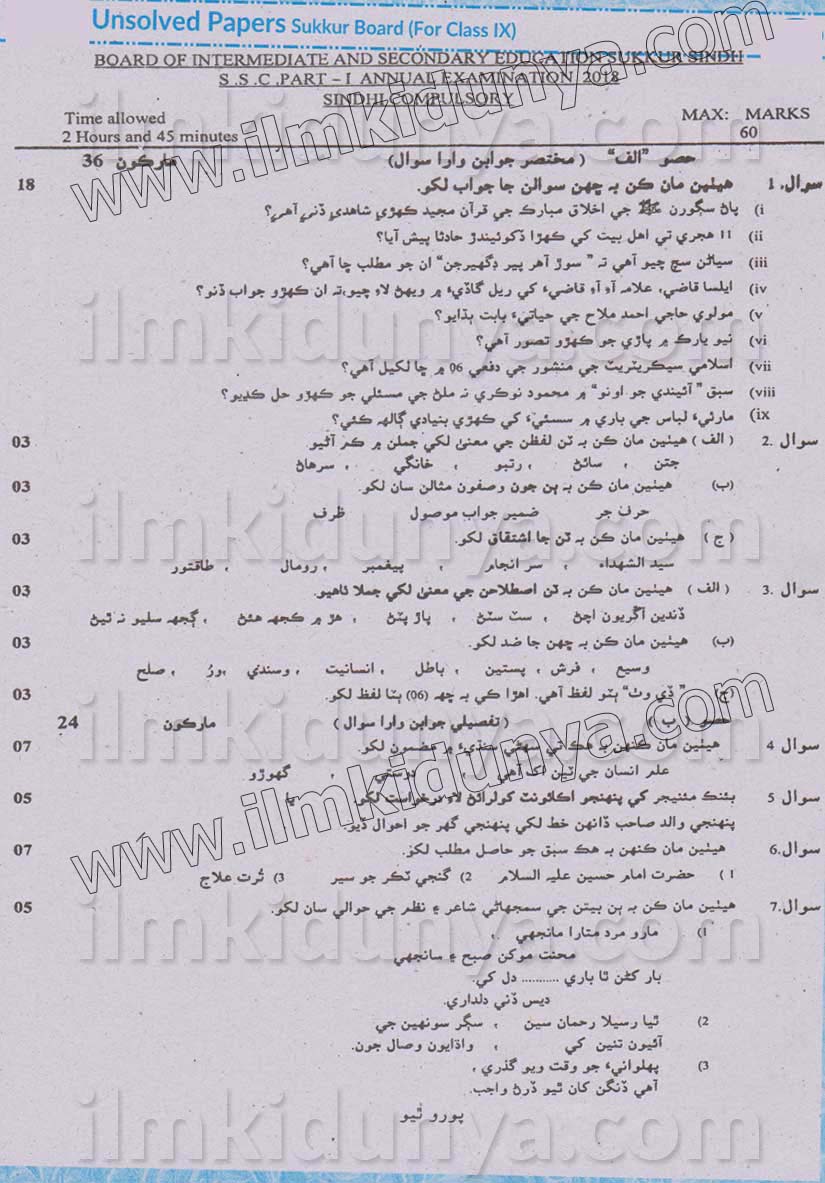 Unsolved Papers Sukkur Board (For Class IX)
BOARD OF INTERMEDIATE AND SECONDARY EDUCATION SUKKUR SINDH
S .S .C .PART – I ANNUAL EXAMINATION 2018
SINDHI COMPULSORY
Time allowed MAX: MARKS
2 Hours and 45 minutes 60
حصو ”الف“ (مختصر جوابن وارا سوال) مارڪون 36
سوال. 1 هيٺين مان ڪن به ڇهن سوالن جا جواب لکو. 18
(i پاڻ سڳورن ﷺ جي اخلاق مبارڪ جي قرآن مجيد ڪهڙي شاهدي ڏني آهي؟
(ii 11 هجري تي اهل بيت کي ڪهڙا ڏکوئيندڙ حادثا پيش آيا؟
(iii سياڻن سچ چيو آهي ته ” سوڙ آهر پير ڊگهيرجن“ ان جو مطلب ڇا آهي؟
(iv ايلسا قاضي، علامه آءِ آءِ قاضيءَ کي ريل گاڏيءَ ۾ ويهڻ لاءِ چيو،ته ان ڪهڙو جواب ڏنو؟
(v مولوي حاجي احمد ملاح جي حياتيءَ بابت ٻڌايو؟
(vi نيو يارڪ ۾ پاڙي جو ڪهڙو تصور آهي؟
(vii اسلامي سيڪريٽريٽ جي منشور جي دفعي 06 ۾ ڇا لکيل آهي؟
(viii سبق ” آئيندي جو اونو“ ۾ محمود نوڪري نه ملڻ جي مسئلي جو ڪهڙو حل ڪڍيو؟
(ix مارئيءَ لباس جي باري ۾ سسئيءَ کي ڪهڙي بنيادي ڳالهه ڪئي؟
سوال .2 ( الف ) هيٺين مان ڪن به ٽن لفظن جي معنيٰ لکي جملن ۾ ڪم آڻيو 03
جتن ، سائڻ ، رتبو ، خانگي ، سرهاڻ
(ب) هيٺين مان ڪن به ٻن جون وصفون مثالن سان لکو. 03
حرف جر ضمير جواب موصول ظرف
( ج ) هيٺين مان ڪن به ٽن جا اشتقاق لکو. 03
سيد الشهداء ، سر انجام ، پيغمبر ، رومال ، طاقتور
سوال .3 ( الف ) هيٺين مان ڪن به ٽن اصطلاحن جي معنيٰ لکي جملا ٺاهيو. 03
ڏندين آڱريون اچڻ ، سٽ سٽڻ ، پاڙ پٽڻ ، هڙ ۾ ڪجهه هئڻ ، ڳجهه سليو نه ٿيڻ
(ب) هيٺين مان ڪن به ڇهن جا ضد لکو. 03
وسيع ، فرش ، پستين ، باطل ، انسانيت ، وسندي ،ورُ ، صلح
(ج) ” ڏي وٺ“ ٻٽو لفظ آهي. اهڙا ڪي به ڇهه (06) ٻٽا لفظ لکو. 03
حصو ( ب ) (تفصيلي جوابن وارا سوال ) مارڪون 24
سوال 4 هيٺين مان ڪنهن به هڪ تي سهڻي سنڌيءَ ۾ مضمون لکو. 07
علم انسان جي ٽين اک آهي ، دوستي ، گهوڙو
سوال 5 بئنڪ مئنيجر کي پنهنجو اڪائونٽ کولرائڻ لاءِ درخواست لکو. يا 05
پنهنجي والد صاحب ڏانهن خط لکي پنهنجي گهر جو احوال ڏيو.
سوال .6 هيٺين مان ڪنهن به هڪ سبق جو حاصل مطلب لکو. 07
1 ) حضرت امام حسين عليه السلام 2) گنجي ٽڪر جو سير 3) تُرت علاج
سوال .7 هيٺين مان ڪن به ٻن بيتن جي سمجهاڻي شاعر ۽ نظر جي حوالي سان لکو. 05
1) مارو مرد متارا مانجهي ،
محنت موکن صبح ۽ سانجهي
بار کڻن ٿا باري ........... دل کي.
ديس ڏني دلداري.
2) ٿيا رسيلا رحمان سين ، سڳر سونهين جي
آئيون تنين کي ، واڌايون وصال جون.
3) پهلوانيءَ جو وقت ويو گذري ،
آهي ڏنگن کان ٿيو ڏرڻ واجب.
پورو ٿيو
www.ilmkidunya.com
www.ilmkidunya.com
ilmkidunya.com
ilmkidunya.com
ilmkidunya.com
ilmkidunya.com
ilmkidunya.com